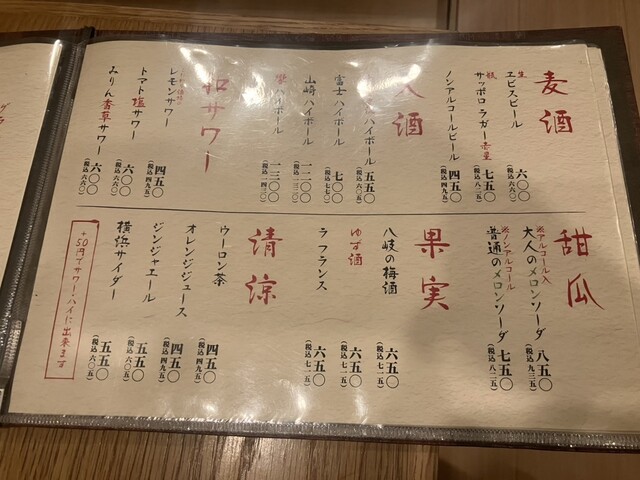 麦酒
生 ヱビスビール 六〇〇 (税込六六〇)
瓶 サッポロ ラガー 赤星 七五〇 (税込八二五)
ノンアルコールビール 四五〇 (税込四九五)
酒
ハイボール 五五〇
富士ハイボール 七〇〇 (税込七七〇)
山崎ハイボール 一二〇〇
ハイボール 一三〇〇 (税込一四三〇)
サワー
レモンサワー 四五〇 (税込四九五)
トマト塩サワー 六〇〇 (税込六六〇)
みりん香草サワー 六〇〇 (税込六六〇)
甜瓜
※アルコール入
大人のメロンソーダ 八五〇 (税込九三五)
※ノンアルコール
普通のメロンソーダ 七五〇 (税込八二五)
果実
八岐の梅酒 六五〇 (税込七一五)
ゆず酒 六五〇 (税込七一五)
ラ フランス 六五〇 (税込七一五)
清涼
ウーロン茶 四五〇 (税込四九五)
オレンジジュース 四五〇 (税込四九五)
ジンジャエール 五五〇 (税込六〇五)
横浜サイダー 五五〇 (税込六〇五)
+50円でサワー・ハイに出来ます